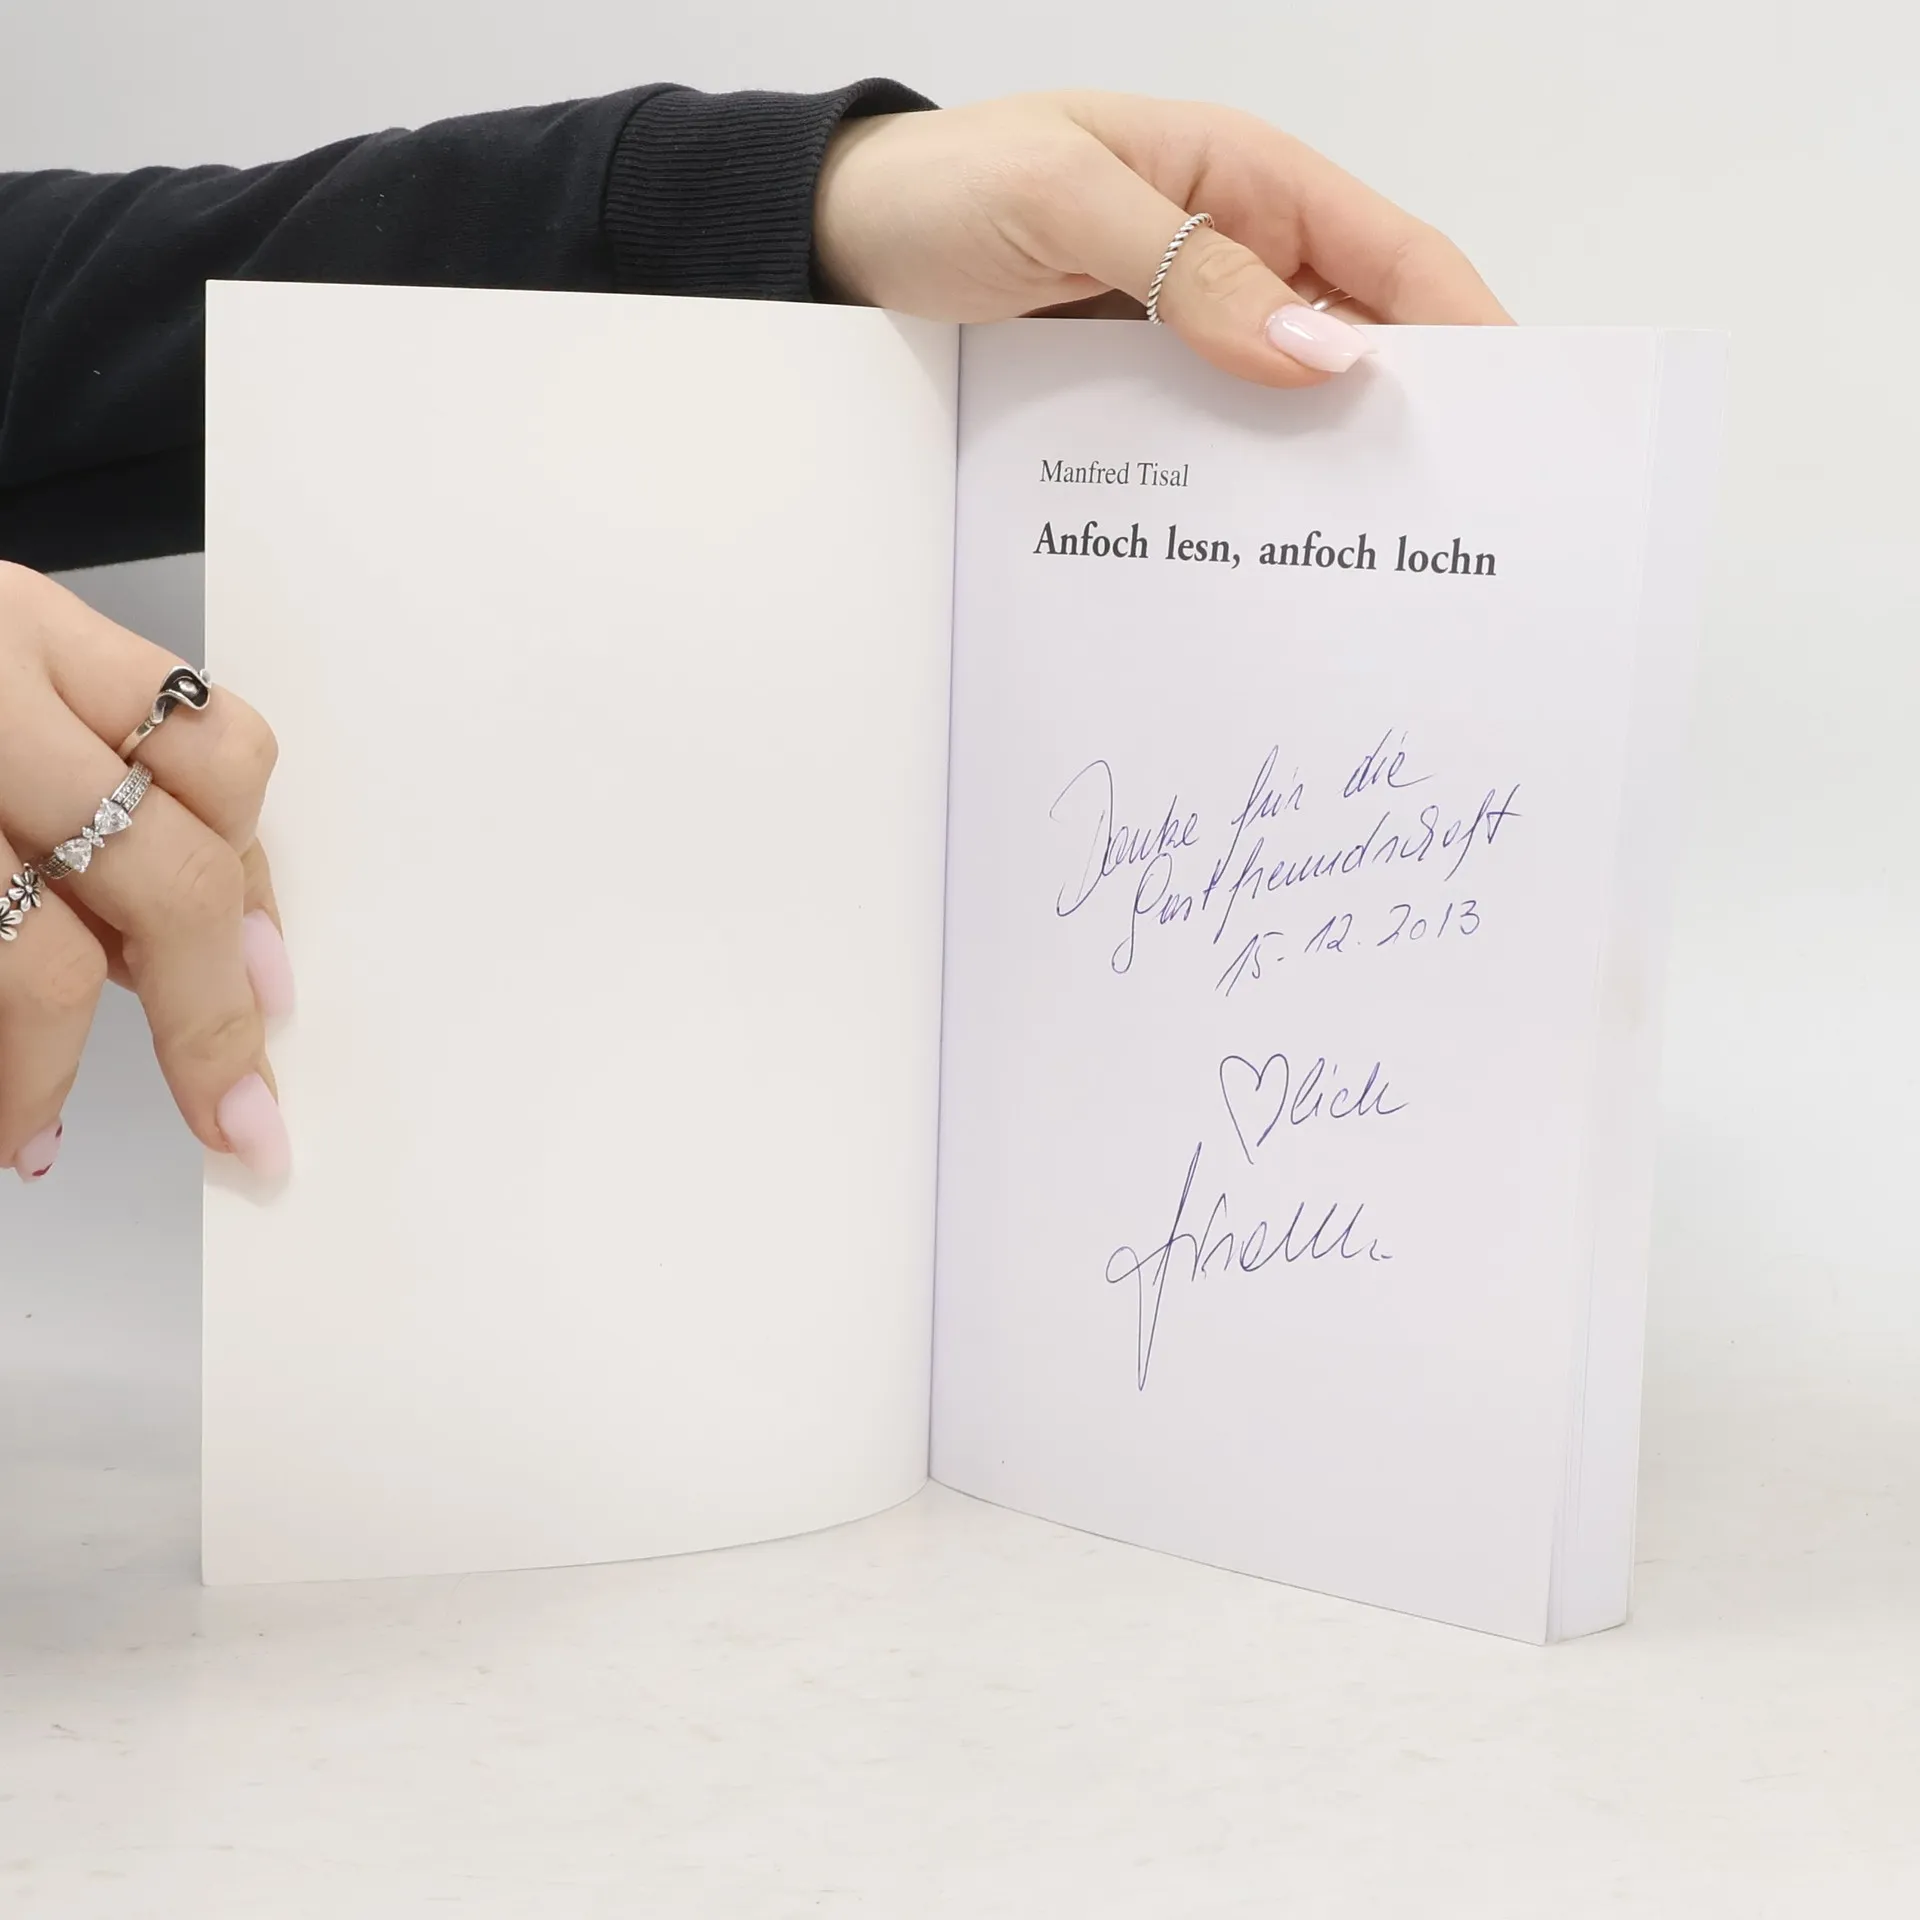 Manfred Tisal
Anfoch lesn, anfoch lochn
Danke für die
Gastfreundschaft
15.12.2013
♡lich